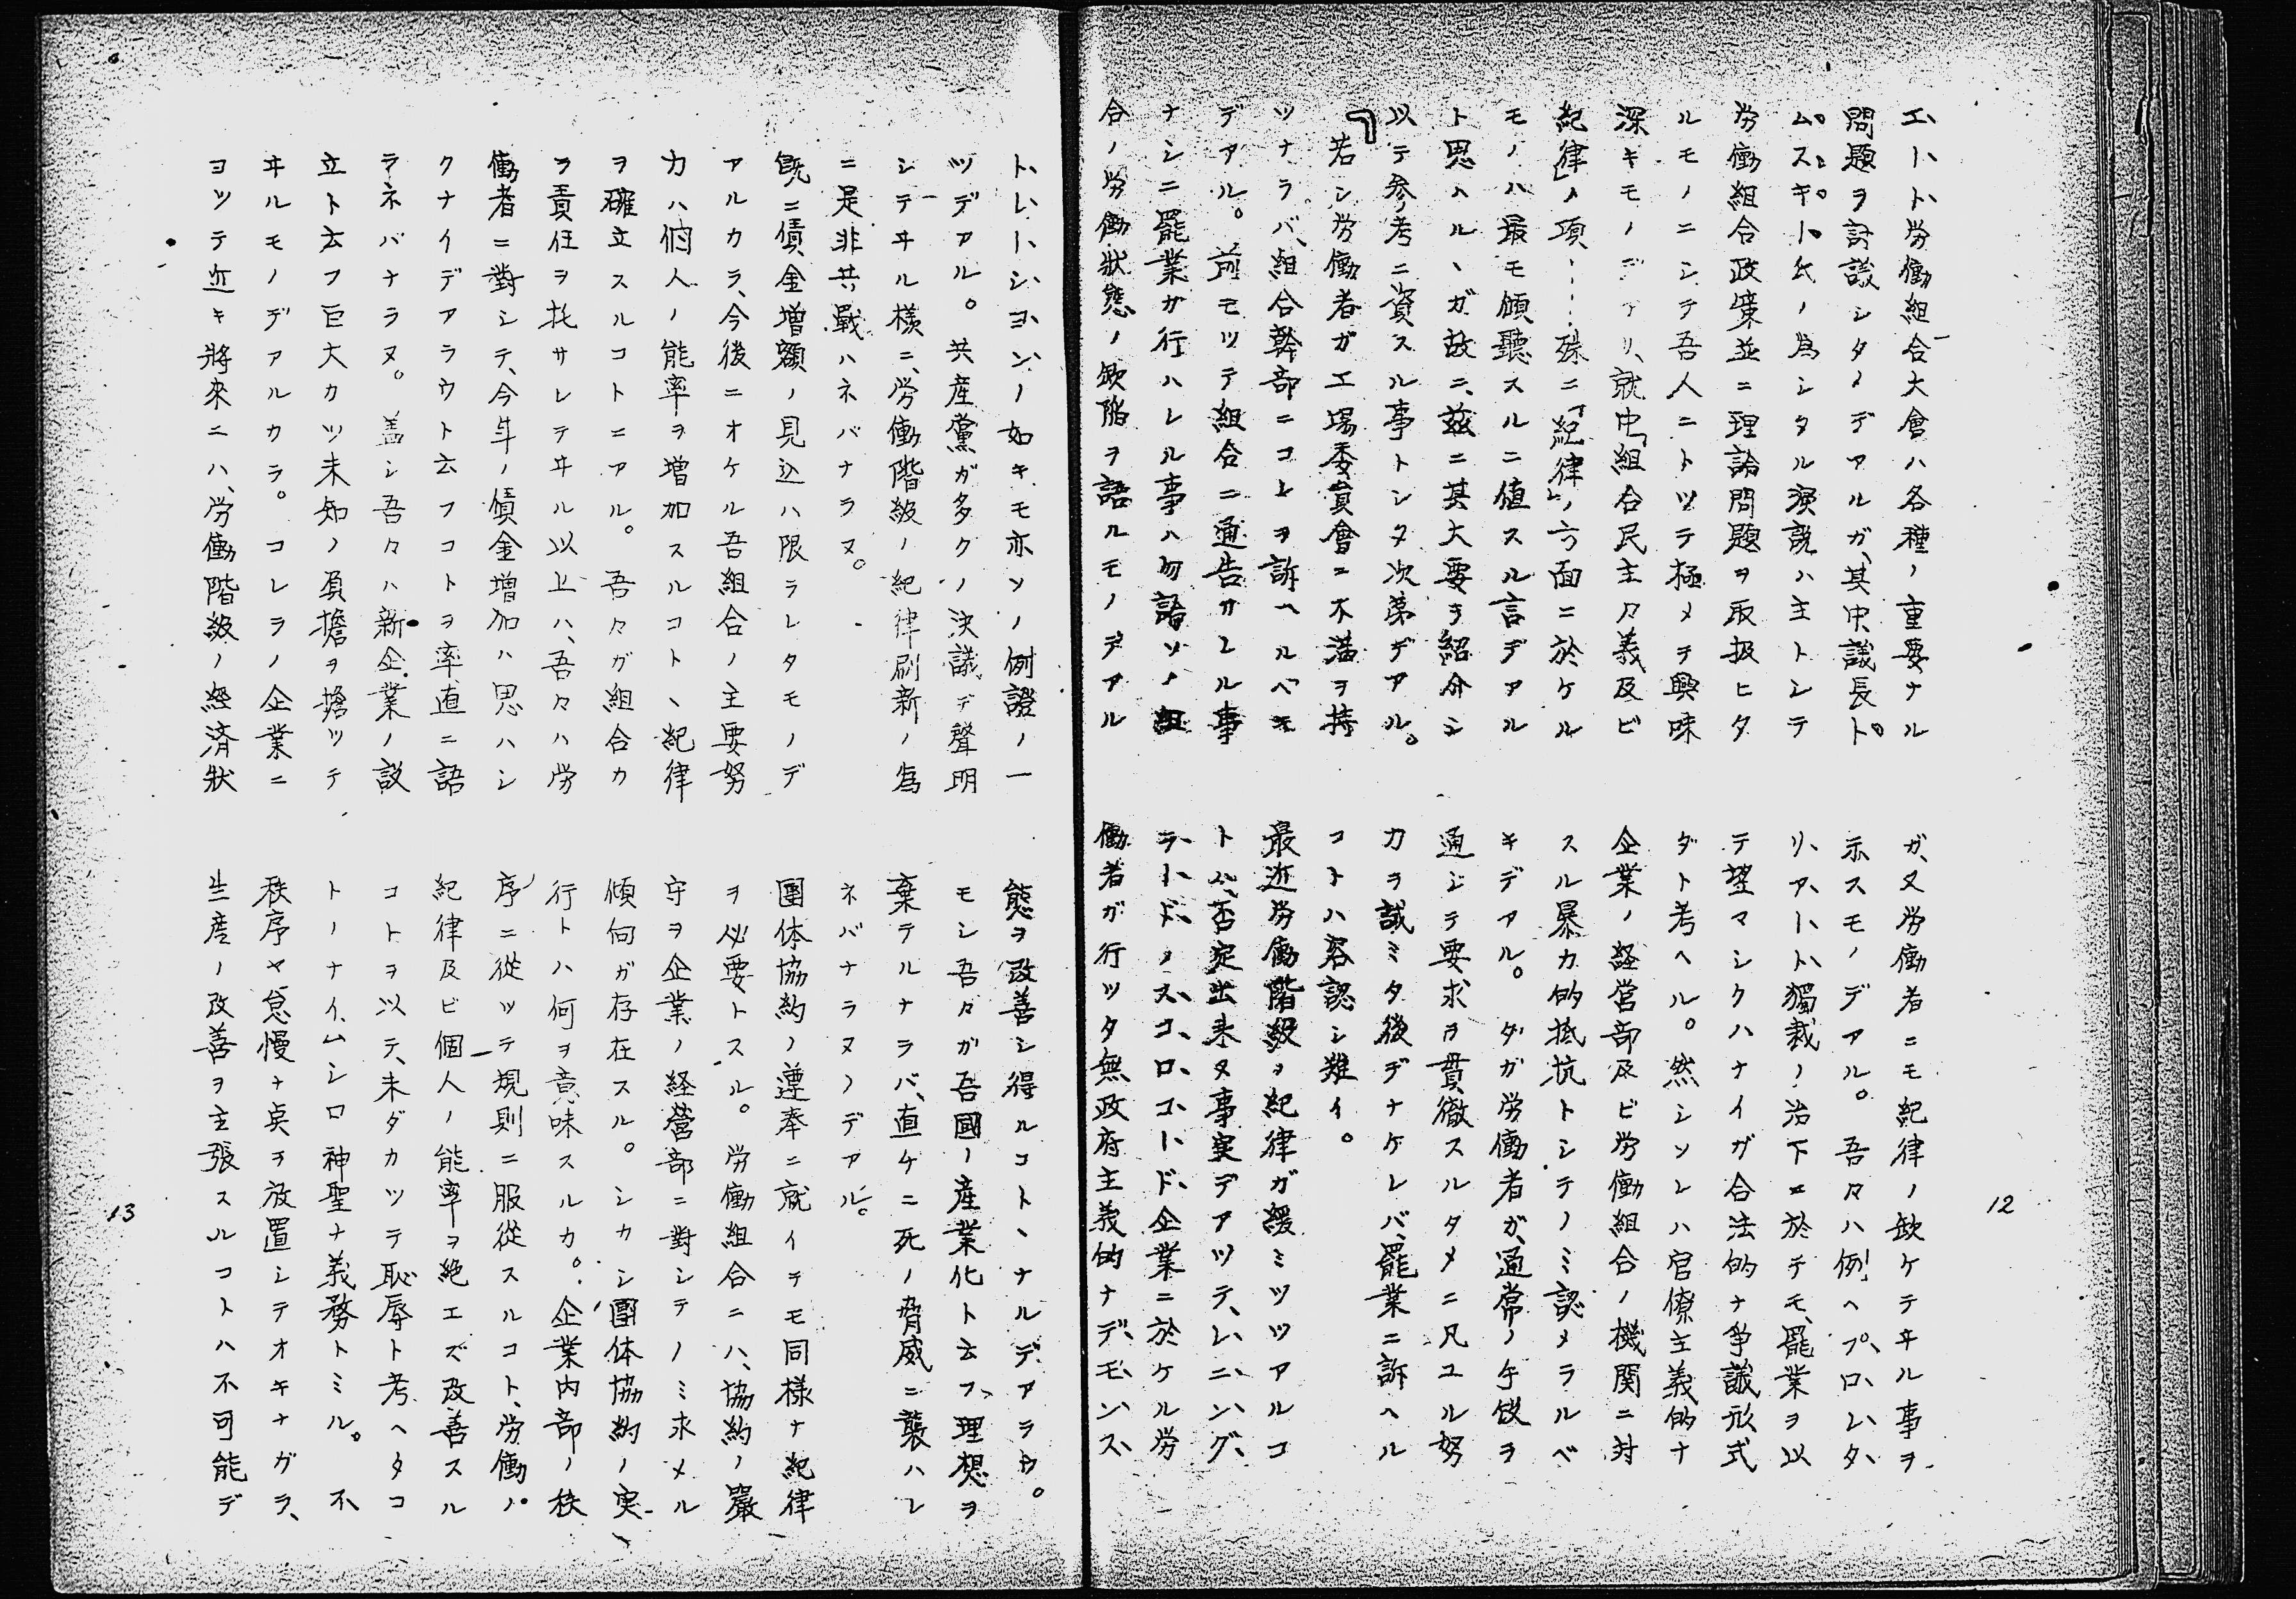 エート労働組合大會ハ各種ノ重要ナル
問題ヲ討議シタノデアルガ、其中、議長ト
ムスキー氏ノ為シタル演説ハ主トシテ
労働組合政策並ニ理論問題ヲ取扱ヒタ
ルモノニシテ吾人ニトツテ極メテ興味
深キモノデアリ、就中「組合民主々義及ビ
紀律」ノ項……殊ニ「紀律」ノ方面ニ於ケル
モノハ最モ傾聽スルニ値スル言デアル
ト思ハルヽガ故ニ、茲ニ其大要ヲ紹介シ
以テ参考ニ資スル事トシタ次第デアル。
「若シ労働者ガ工場委員會ニ不満ヲ持
ツナラバ、組合幹部ニコレヲ訴ヘルベキ
デアル。前モツテ組合ニ通告サレル事
ナシニ罷業ガ行ハレル事ハ勿論ソノ組
合ノ労働狀態ノ欠陥ヲ語ルモノデアル
ガ、又労働者ニモ紀律ノ欠ケテヰル事ヲ
示スモノデアル。吾々ハ例ヘプロレタ
リアート獨裁ノ治下ニ於テモ、罷業ヲ以
テ望マシクハナイガ合法的ナ争議形式
ダト考ヘル。然シソレハ官僚主義的ナ
企業ノ経営部及ビ労働組合ノ機関ニ対
スル暴力的抵抗トシテノミ認メラルベ
キデアル。ダガ労働者ガ、通常ノ手段ヲ
通シテ要求ヲ貫徹スルタメニ凡ユル努
力ヲ試ミタ後デナケレバ、罷業ニ訴ヘル
コトハ容認シ難イ。
最近労働階級ノ紀律ガ緩ミツツアルコ
トハ、否定出来タ事実デアツテ、レニング
ラードノスコロコード企業ニ於ケル労
働者ガ行ツタ無政府主義的ナデモンス
トレーシヨンノ如キモ亦ソノ例證ノ一
ツデアル。共産黨ガ多クノ決議デ聲明
シテヰル樣ニ、労働階級ノ紀律刷新ノ為
ニ是非共戰ハネバナラヌ。
既ニ債金増額ノ見込ハ限ラレタモノデ
アルカラ、今後ニオケル吾組合ノ主要努
力ハ個人ノ能率ヲ増加スルコトヽ紀律
ヲ確立スルコトニアル。吾々ガ組合カ
ヲ責任ヲ托サレテヰル以上ハ、吾々ハ労
働者ニ對シテ、今年ノ債金増加ハ思ハシ
クナイデアラウト云フコトヲ率直ニ語
ラネバナラヌ。盖シ吾々ハ新企業ノ設
立ト云フ巨大カツ未知ノ負擔ヲ擔ツテ
ヰルモノデアルカラ。コレラノ企業ニ
ヨツテ近キ將來ニハ、労働階級ノ経済狀
態ヲ改善シ得ルコトヽナルデアラウ。
モシ吾々ガ吾國ノ産業化ト云フ、理想ヲ
棄テルナラバ、直ケニ死ノ脅威ニ襲ハレ
ネバナラヌノデアル。
團体協約ノ遵奉ニ就イテモ同樣ナ紀律
ヲ必要トスル。労働組合ニハ、協約ノ嚴
守ヲ企業ノ経營部ニ對シテノミ求メル
傾向ガ存在スル。シカシ團体協約ノ実
行トハ何ヲ意味スルカ。企業内部ノ秩
序ニ從ツテ規則ニ服從スルコト、労働ノ
紀律及ビ個人ノ能率ヲ絶エズ改善スル
コトヲ以テ、未ダカツテ恥辱ト考ヘタコ
トノナイ、ムシロ神聖ナ義務トミル。不
秩序ヤ怠慢ナ点ヲ放置シテオキナガラ、
生産ノ改善ヲ主張スルコトハ不可能デ
12
13